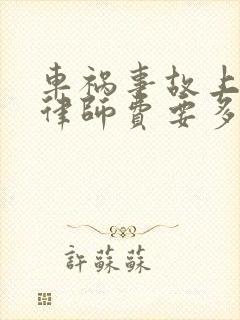 車禍事故上
律師費要多
許蘇蘇